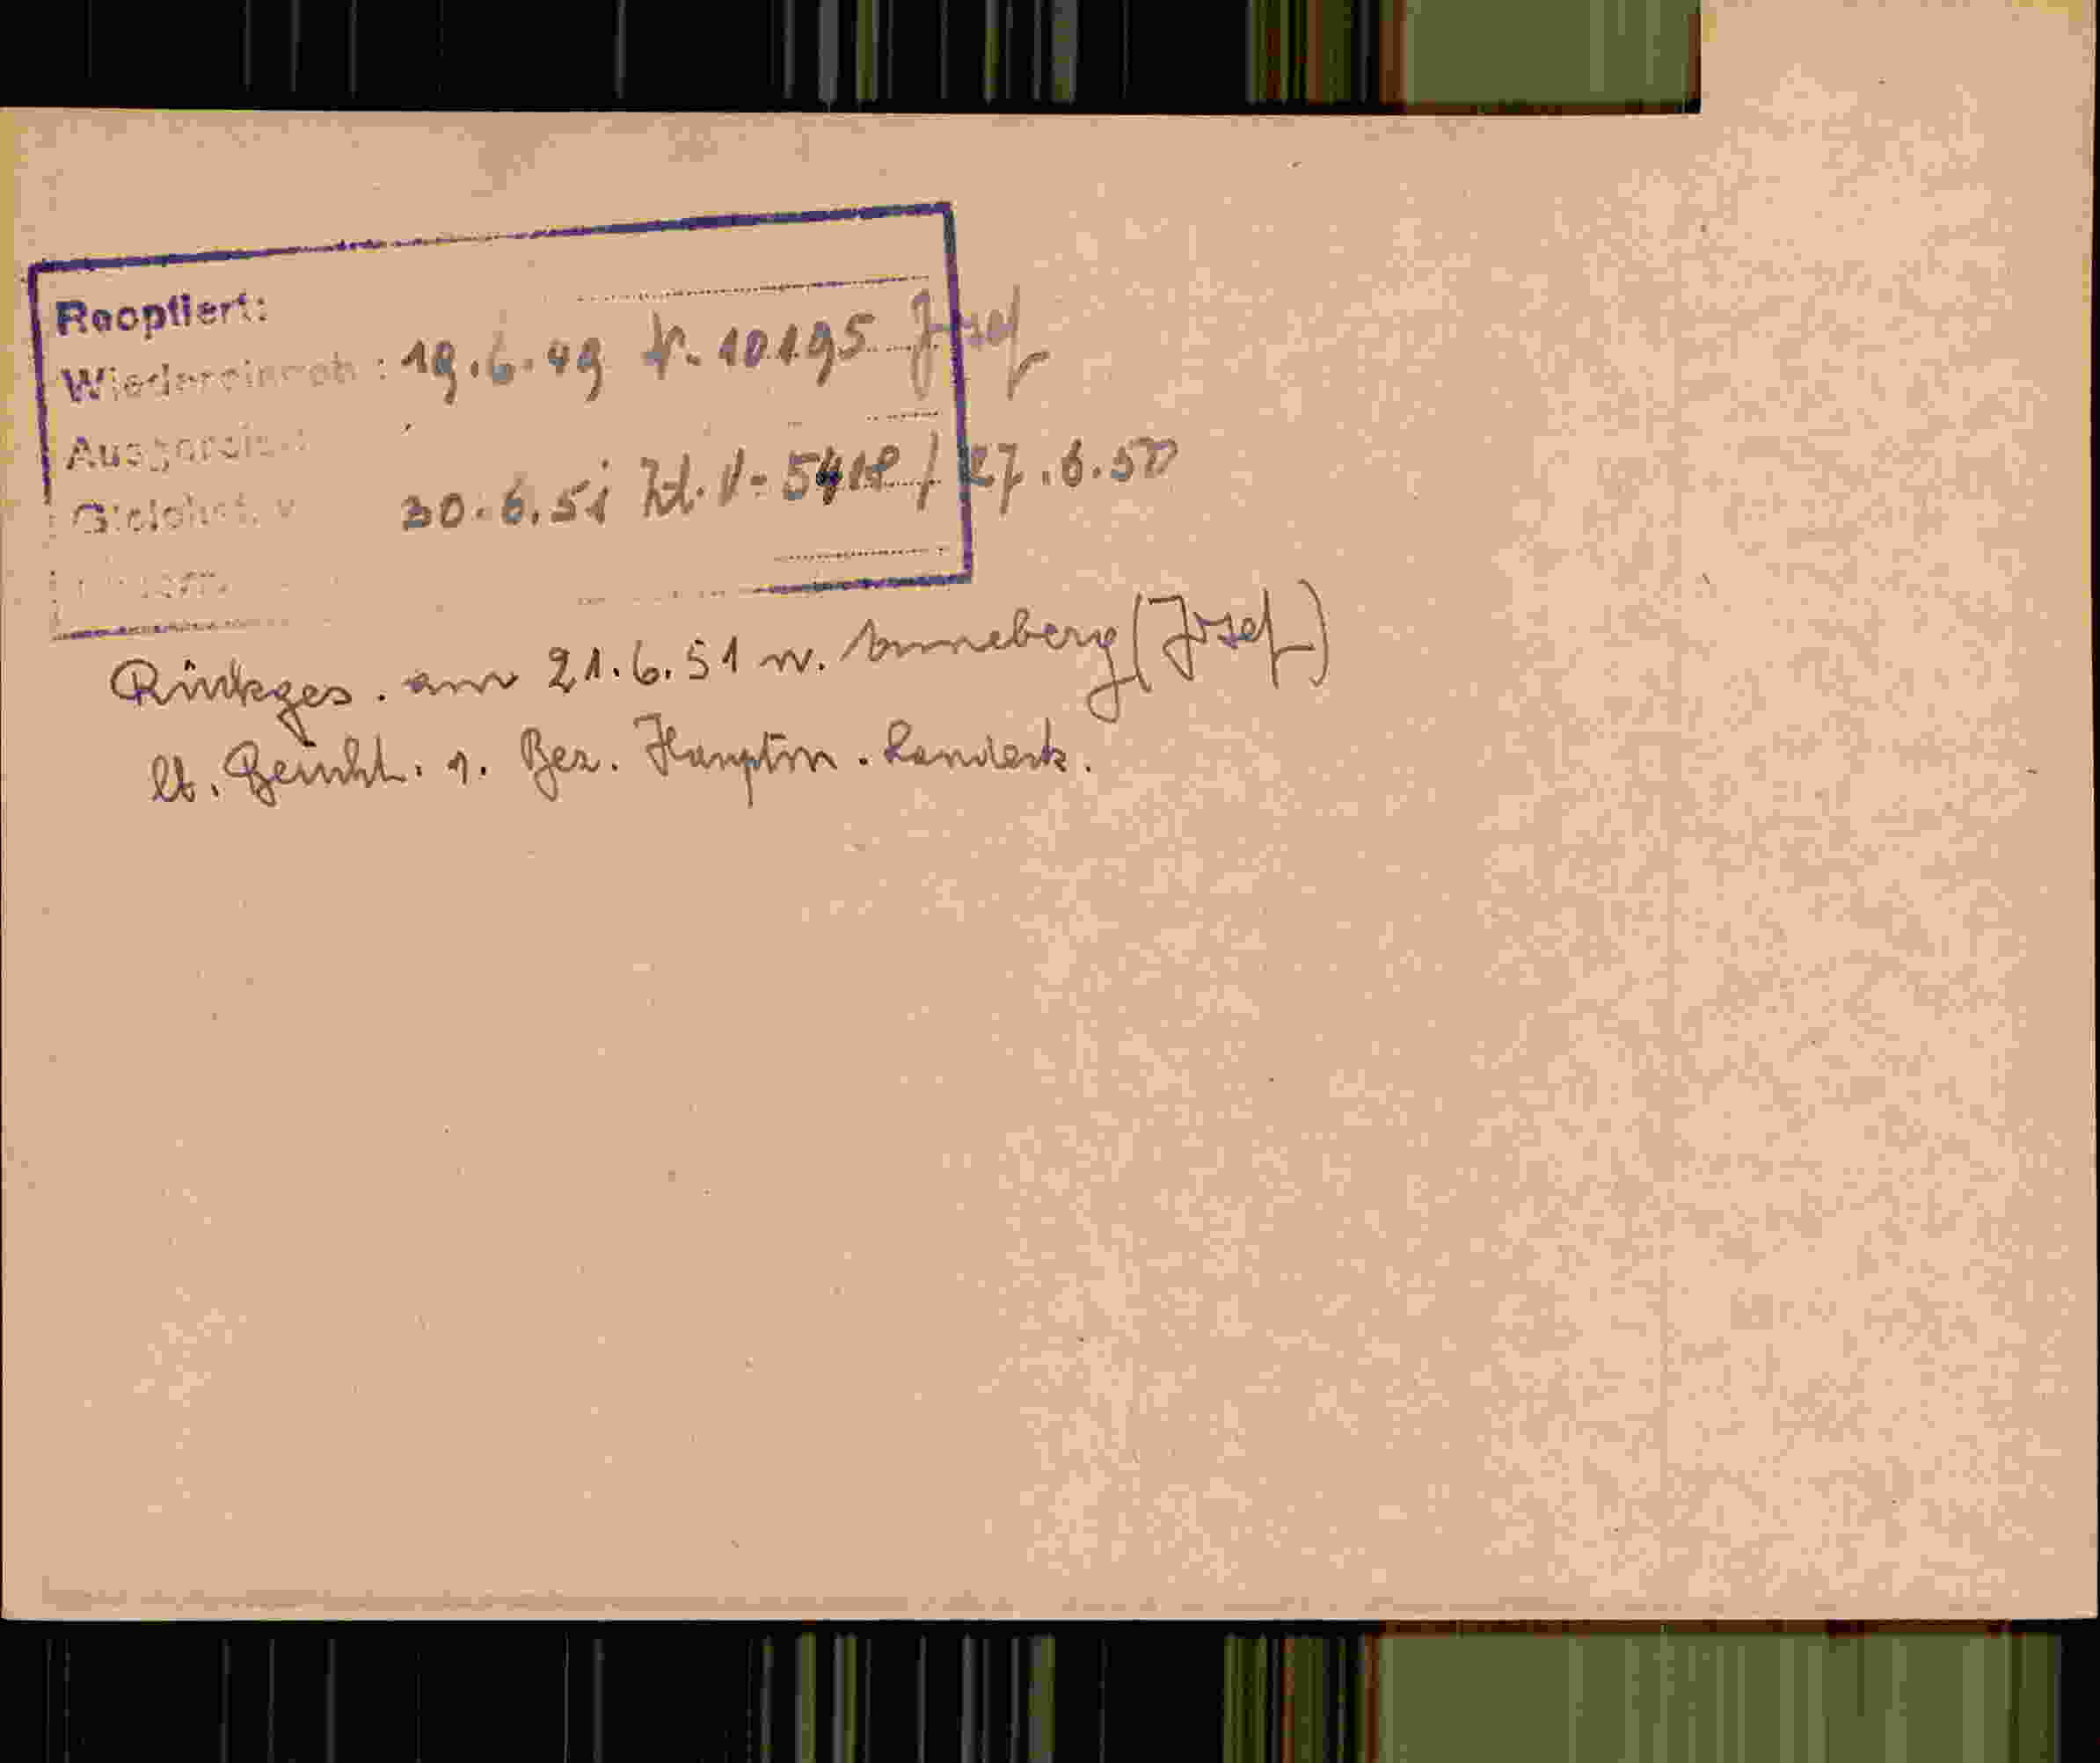 Reoptiert:
Wiedereinreh: 19.6.49 V. 10195 Josef
Ausgereist:
Gleichst. v 30.6.51 Zl. V- 5412/27.6.50
Rückges. am 21.6.51 n. Anneberg (Josef)
lt. Bericht. d. Bez. Hauptm. Landeck.